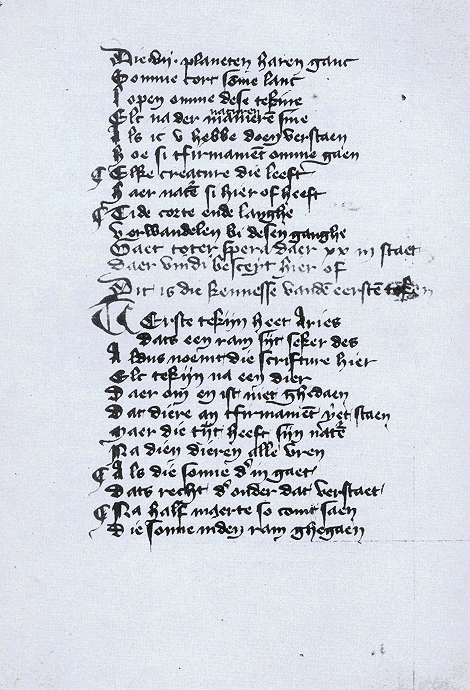 Die vij. planeten haren ganc
Somme cort some lanc
Lopen omme dese tekine
Elc na der manieren sine
Als ic v hebbe doen verstaen
Hoe si tfirmamēt omme gaen
Elke creature die leeft
Haer natꝰe si hier of heeft
Tide corte ende langhe
Verwandelen bi desen ganghe
Gaet toter spera daer xx in staet
daer vindi besceyt hier of
Dit is die kennesse vandē eerstē teken
Eerste tekijn heet Aries
dats een ram sijt seker des
Aldus noemt die scrifture hier
Elc tekijn na een dier
Daer om en ist niet ghedaen
Dat diere an tfirmamēt yet staen
Maer die tijt heeft sijn natꝰe
Na dien dieren alle vren
Als die sonne dꝰ in gaet
Dats recht dꝰ onder dat verstaet
Na half maerte so comt saen
Die sonne inden ram ghegaen